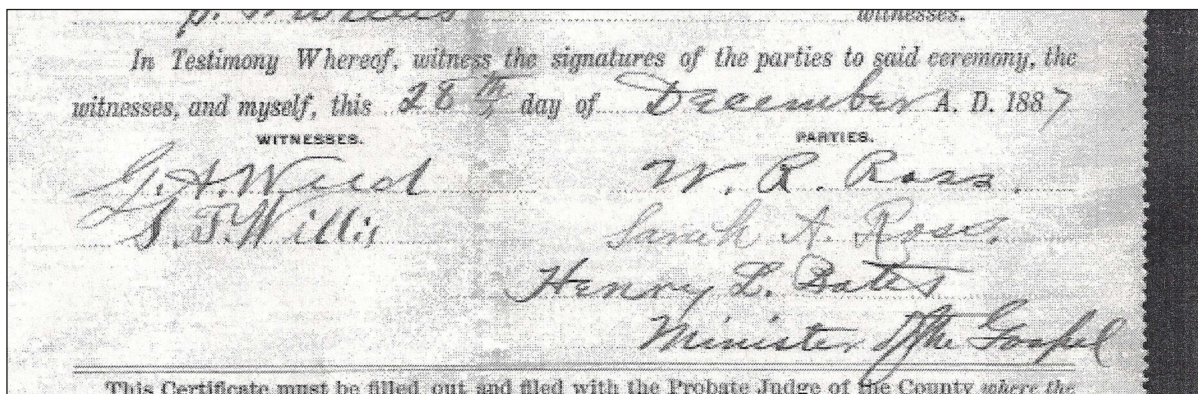 witnesses.
In Testimony Whereof, witness the signatures of the parties to said ceremony, the
witnesses, and myself, this 28th day of December A. D. 1887
WITNESSES. PARTIES.
G. A. Weed W. R. Ross.
S. T. Willis Sarah A. Ross.
Henry L. Bates
Minister of the Gospel
This Certificate must be filled out and filed with the Probate Judge of the County where the